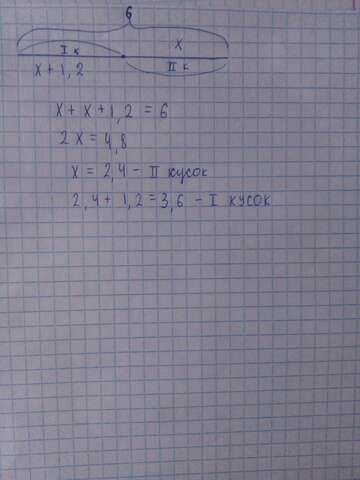 6
I к
x
x + 1,2
II к
x + x + 1,2 = 6
2x = 4,8
x = 2,4 - II кусок
2,4 + 1,2 = 3,6 - I кусок